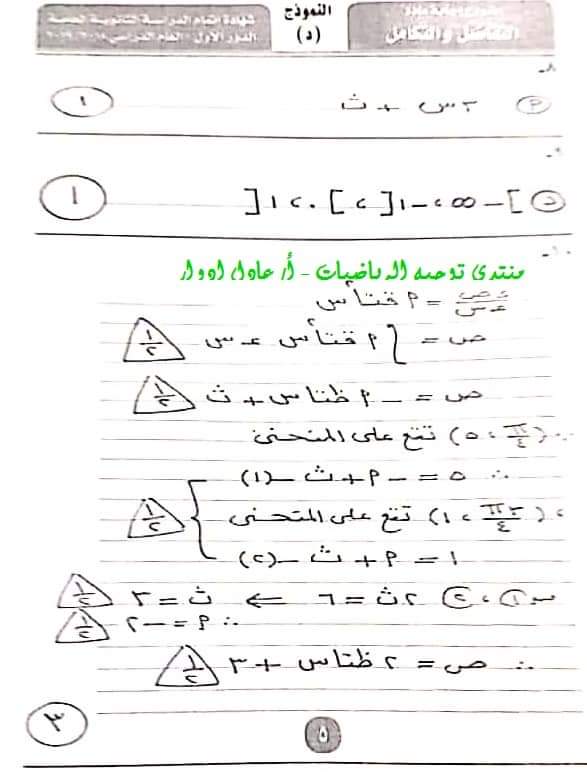 شهادة إتمام الدراسة الثانوية العامة
الدور الأول - العام الدراسى ٢٠١٨/٢٠١٩
النموذج
(د)
التفاضل والتكامل
٨-
(P) ٢س + ث
١
٩-
(د) ]-∞، -١] ، [٠، ١[
١
١٠-
منتدى توجيه الرياضيات - أ/ عادل إدوار
ءص/ءس = P قتا²س
ص = ∫ P قتا²س ءس ½
ص = - P ظتاس + ث ½
∵ (π/٤ ، ٥) تقع على المنحنى
∴ ٥ = - P + ث -(١)
، (٣π/٤ ، ١) تقع على المنحنى ½
١ = P + ث -(٢)
من ①، ② ٢ث = ٦ ⇐ ث = ٣ ½
∴ P = -٢ ½
∴ ص = ٢ ظتاس + ٣ ½
٣
٥